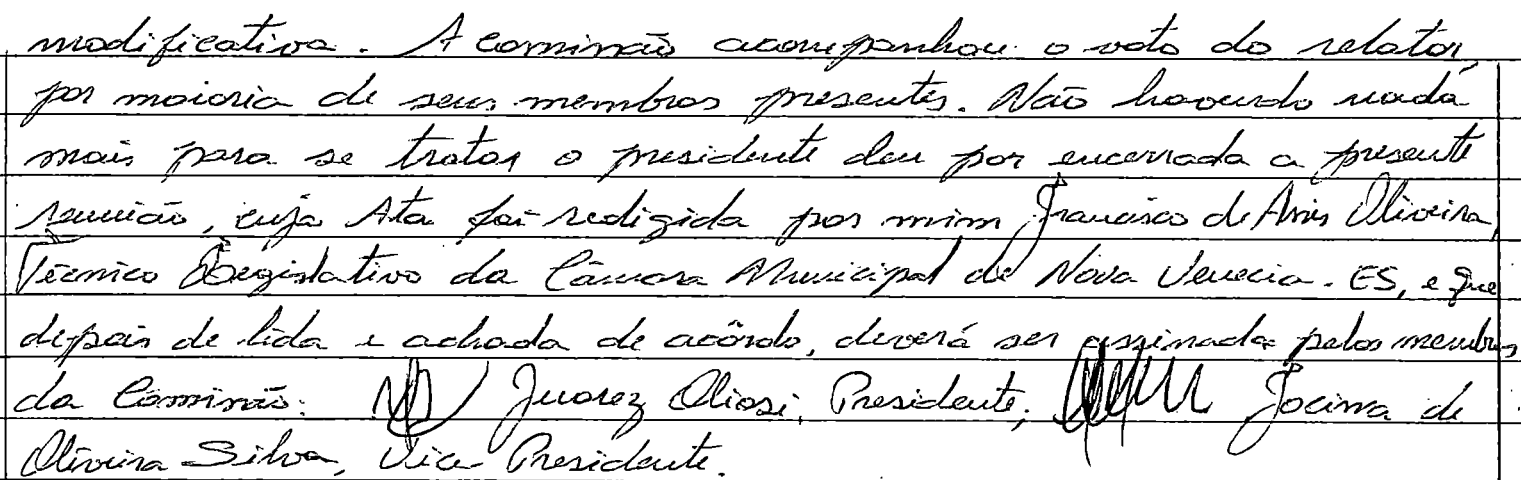 modificativa. A comissão acompanhou o voto do relator,
por maioria de seus membros presentes. Não havendo nada
mais para se tratar o presidente deu por encerrada a presente
reunião, cuja Ata foi redigida por mim Francisco de Assis Oliveira,
Técnico Legislativo da Câmara Municipal de Nova Venecia - ES, e que
depois de lida e achada de acôrdo, deverá ser assinada pelos membros
da Comissão: Juarez Oliosi, Presidente; Jocima de
Oliveira Silva, Vice Presidente.